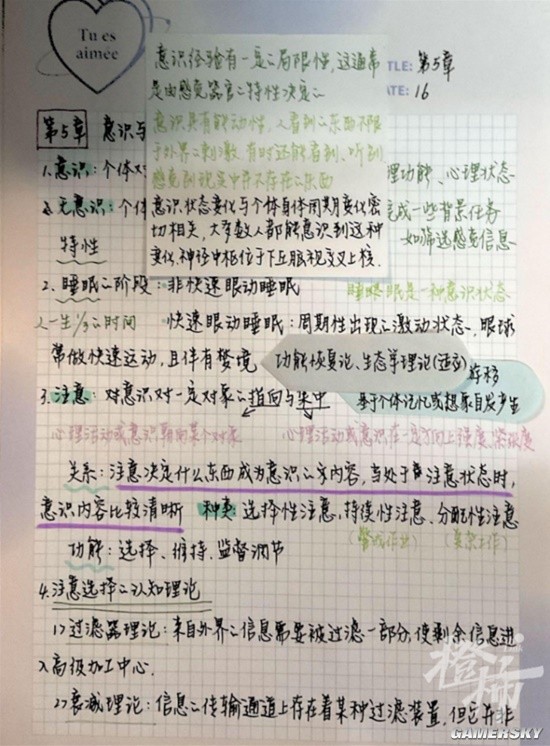 Tu es
aimée
TLE: 第5章
ATE: 16
意识经验有一定二局限性，这通常
是由感觉器官二特性决定二
意识具有能动性，人看到二东西不限
于外界二刺激，有时还能看到、听到、
感觉到现实中并不存在二东西
意识状态变化与个体身体周期变化密
切相关，大多数人都能意识到这种
变化，神经中枢位于下丘脑视交叉上核.
第5章 意识与
1.意识：个体对
理功能、心理状态
2.无意识：个体
完成一些背景任务
如筛选感觉信息
特性
2.睡眠二阶段：非快速眼动睡眠
睡眠是一种意识状态
一生1/3二时间 快速眼动睡眠：周期性出现二激动状态、眼球
常做快速运动，且伴有梦境
功能恢复论、生态学理论(适应)
3.注意：对意识对一定对象二指向与集中
基于个体记忆或想象自发产生
心理活动或意识朝向某个对象 心理活动或意识在一定方向上强度、紧张度
关系：注意决定什么东西成为意识二内容，当处于注意状态时，
意识内容比较清晰 种类：选择性注意，持续性注意、分配性注意
功能：选择、维持、监督调节
4.注意选择二认知理论
1)过滤器理论：来自外界二信息需要被过滤一部分，使剩余信息进
入高级加工中心.
2)衰减理论：信息二传输通道上存在着某种过滤装置，但它并非
橙柿
GAMERSKY